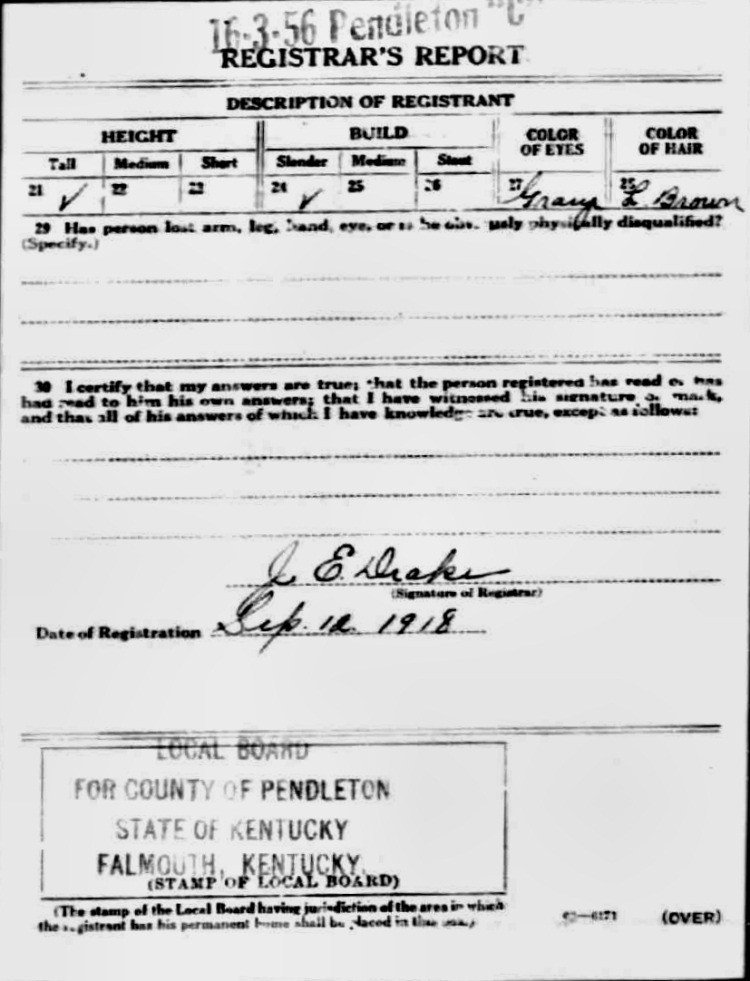 16-3-56 Pendleton "C"
REGISTRAR'S REPORT
DESCRIPTION OF REGISTRANT
HEIGHT BUILD COLOR OF EYES COLOR OF HAIR
Tall Medium Short Slender Medium Stout
21 ✓ 22 23 24 ✓ 25 26 27 Gray 28 L. Brown
29 Has person lost arm, leg, hand, eye, or is he obviously physically disqualified?
(Specify.)
30 I certify that my answers are true; that the person registered has read or has
had read to him his own answers; that I have witnessed his signature or mark,
and that all of his answers of which I have knowledge are true, except as follows:
J E. Drake
(Signature of Registrar)
Date of Registration Sep. 12 1918
LOCAL BOARD
FOR COUNTY OF PENDLETON
STATE OF KENTUCKY
FALMOUTH, KENTUCKY.
(STAMP OF LOCAL BOARD)
(The stamp of the Local Board having jurisdiction of the area in which
the registrant has his permanent home shall be placed in this box.)
(OVER)